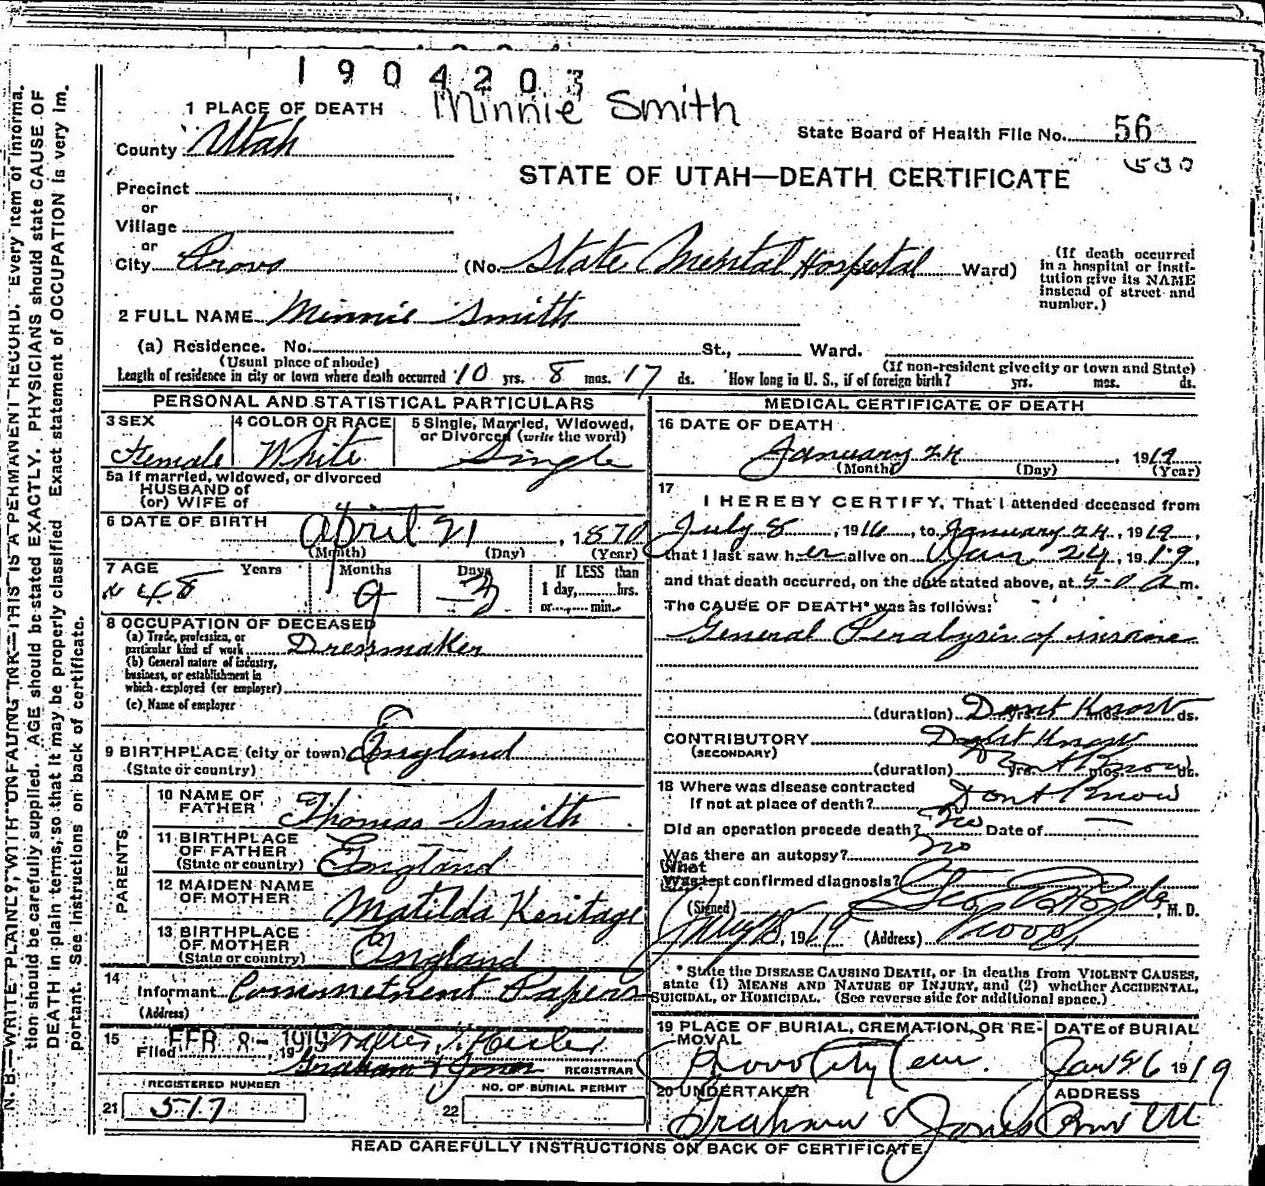 1904203
Minnie Smith
1 PLACE OF DEATH
State Board of Health File No. 56
530
County Utah
STATE OF UTAH—DEATH CERTIFICATE
Precinct
or
Village
or
City Provo (No. State Mental Hospital Ward)
(If death occurred
in a hospital or insti-
tution give its NAME
instead of street and
number.)
2 FULL NAME Minnie Smith
(a) Residence. No. St., Ward.
(Usual place of abode) (If non-resident give city or town and State)
Length of residence in city or town where death occurred 10 yrs. 8 mos. 17 ds. How long in U. S., if of foreign birth? yrs. mos. ds.
PERSONAL AND STATISTICAL PARTICULARS
3 SEX
Female
4 COLOR OR RACE
White
5 Single, Married, Widowed,
or Divorced (write the word)
Single
5a If married, widowed, or divorced
HUSBAND of
(or) WIFE of
6 DATE OF BIRTH
April 21, 1870
(Month) (Day) (Year)
7 AGE Years Months Days
48 9 3
If LESS than
1 day, hrs.
or min.
8 OCCUPATION OF DECEASED
(a) Trade, profession, or
particular kind of work Dressmaker
(b) General nature of industry,
business, or establishment in
which employed (or employer)
(c) Name of employer
9 BIRTHPLACE (city or town) England
(State or country)
PARENTS
10 NAME OF
FATHER Thomas Smith
11 BIRTHPLACE
OF FATHER
(State or country) England
12 MAIDEN NAME
OF MOTHER Matilda Keritage
13 BIRTHPLACE
OF MOTHER
(State or country) England
14
Informant Commetment Papers
(Address)
15
Filed FEB 8 - 1919, 19
Graham & Jones REGISTRAR
REGISTERED NUMBER
21 517
NO. OF BURIAL PERMIT
22
MEDICAL CERTIFICATE OF DEATH
16 DATE OF DEATH
January 24, 1919
(Month) (Day) (Year)
17
I HEREBY CERTIFY, That I attended deceased from
July 8, 1916, to January 24, 1919,
that I last saw her alive on Jan 24, 1919,
and that death occurred, on the date stated above, at 5-0 a m.
The CAUSE OF DEATH* was as follows:
General Paralysis of insane
(duration) Dont Know yrs. mos. ds.
CONTRIBUTORY Dont Know
(SECONDARY)
(duration) Dont Know yrs. mos. ds.
18 Where was disease contracted
if not at place of death? Dont Know
Did an operation precede death? no Date of —
Was there an autopsy? no
What test confirmed diagnosis?
(Signed) Geo , M. D.
, 1919 (Address) Provo
* State the DISEASE CAUSING DEATH, or in deaths from VIOLENT CAUSES,
state (1) MEANS AND NATURE OF INJURY, and (2) whether ACCIDENTAL,
SUICIDAL, or HOMICIDAL. (See reverse side for additional space.)
19 PLACE OF BURIAL, CREMATION, OR RE-
MOVAL
Provo City Cem.
DATE of BURIAL
Jan 26 1919
20 UNDERTAKER
Graham & Jones
ADDRESS
Provo Ut
READ CAREFULLY INSTRUCTIONS ON BACK OF CERTIFICATE
N. B.—WRITE PLAINLY, WITH UNFADING INK—THIS IS A PERMANENT RECORD. Every item of informa-
tion should be carefully supplied. AGE should be stated EXACTLY. PHYSICIANS should state CAUSE OF
DEATH in plain terms, so that it may be properly classified. Exact statement of OCCUPATION is very im-
portant. See instructions on back of certificate.